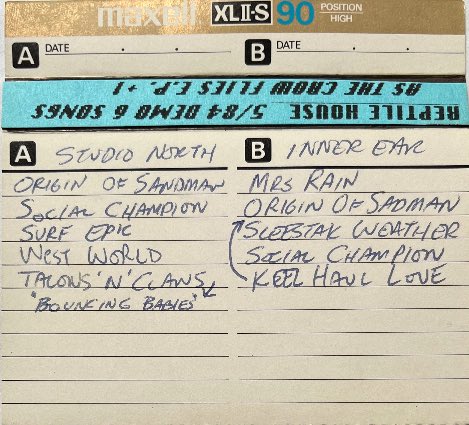 maxell XLII-S 90 POSITION HIGH
A DATE . . B DATE . .
AS THE CROW FLIES E.P. +1
REPTILE HOUSE 5/84 DEMO 6 SONGS
A STUDIO NORTH
ORIGIN OF SANDMAN
SOCIAL CHAMPION
SURF EPIC
WEST WORLD
TALONS 'N' CLAWS
"BOUNCING BABIES"
B INNER EAR
MRS RAIN
ORIGIN OF SADMAN
SLEESTAK WEATHER
SOCIAL CHAMPION
KEEL HAUL LOVE